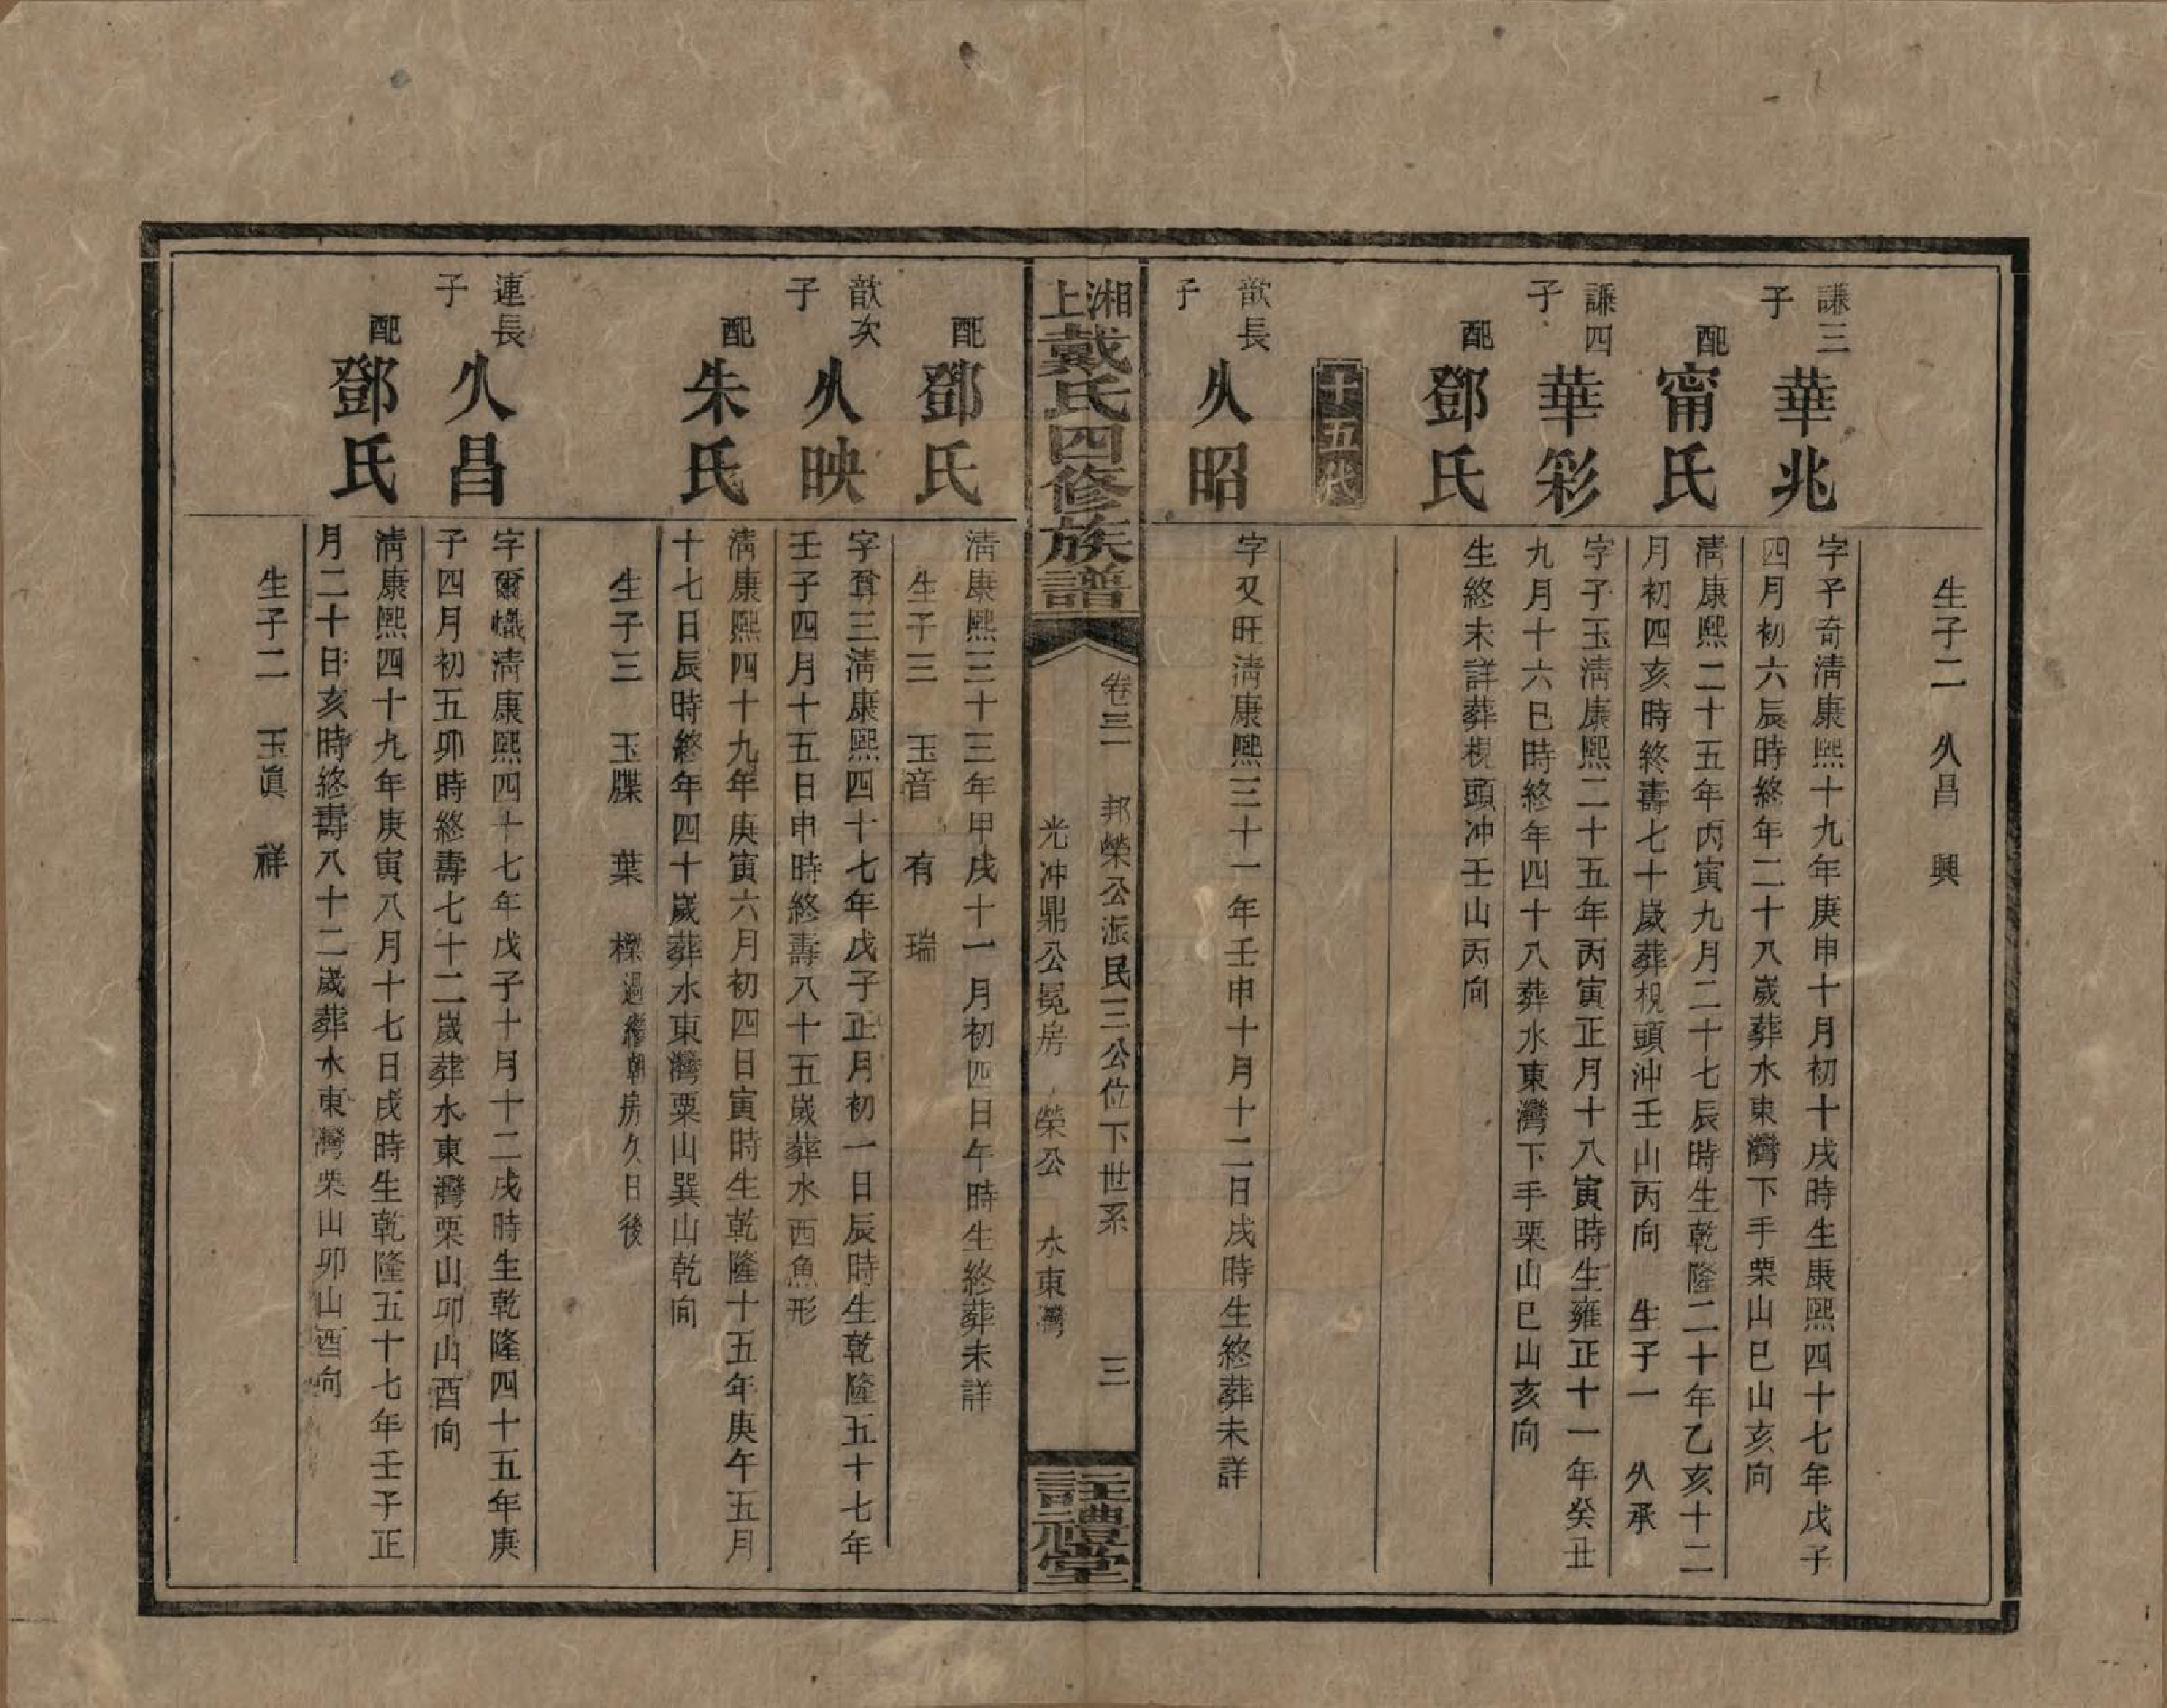 生子二　久昌　興
謙三子
華兆
字予奇淸康熙十九年庚申十月初十戌時生康熙四十七年戊子
四月初六辰時終年二十八歲葬水東灣下手栗山巳山亥向
配
甯氏
淸康熙二十五年丙寅九月二十七辰時生乾隆二十年乙亥十二
月初四亥時終壽七十歲葬枧頭沖壬山丙向　生子一　久承
謙四子
華彩
字子玉淸康熙二十五年丙寅正月十八寅時生雍正十一年癸丑
九月十六巳時終年四十八葬水東灣下手栗山巳山亥向
配
鄧氏
生終未詳葬枧頭冲壬山丙向
十五代
歆長子
久昭
字又旺淸康熙三十一年壬申十月十二日戌時生終葬未詳
湘上戴氏四修族譜
卷三　邦榮公派民三公位下世系　三
光冲鼎公冕房　榮公　水東灣
註禮堂
配
鄧氏
淸康熙三十三年甲戌十一月初四日午時生終葬未詳
生子三　玉音　有　瑞
歆次子
久映
字耷三淸康熙四十七年戊子正月初一日辰時生乾隆五十七年
壬子四月十五日申時終壽八十五歲葬水西魚形
配
朱氏
淸康熙四十九年庚寅六月初四日寅時生乾隆十五年庚午五月
十七日辰時終年四十歲葬水東灣粟山巽山乾向
生子三　玉牒　葉　樑過繼朝房久日後
連長子
久昌
字爾幟淸康熙四十七年戊子十月十二戌時生乾隆四十五年庚
子四月初五卯時終壽七十二歲葬水東灣栗山卯山酉向
配
鄧氏
淸康熙四十九年庚寅八月十七日戌時生乾隆五十七年壬子正
月二十日亥時終壽八十二歲葬水東灣栗山卯山酉向
生子二　玉眞　祥